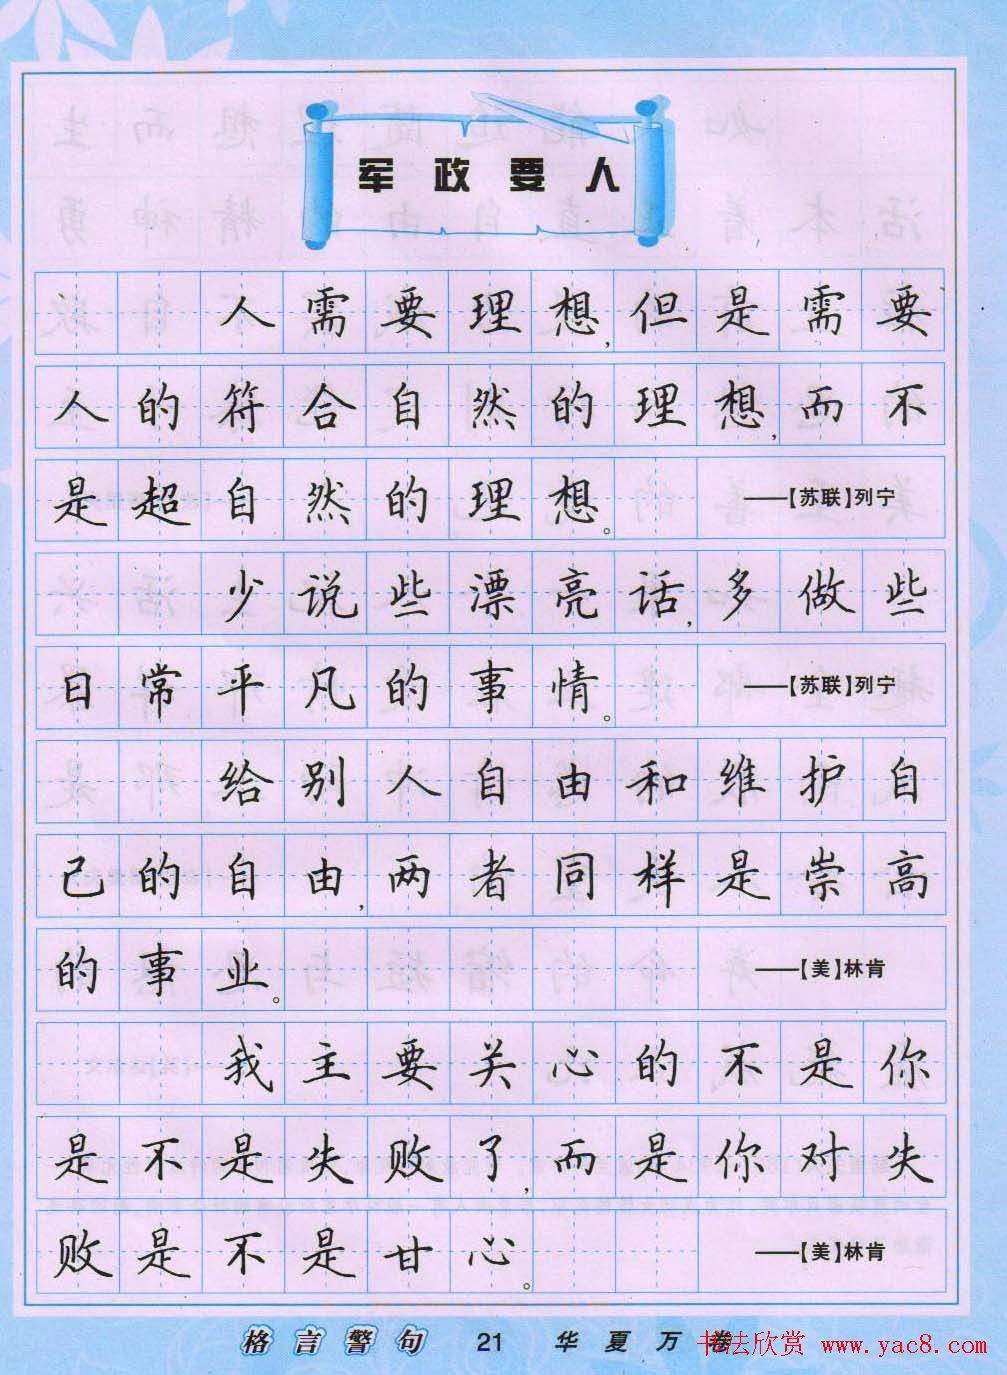 军政要人
人需要理想,但是需要
人的符合自然的理想,而不
是超自然的理想。 ——【苏联】列宁
少说些漂亮话,多做些
日常平凡的事情。 ——【苏联】列宁
给别人自由和维护自
己的自由,两者同样是崇高
的事业。 ——【美】林肯
我主要关心的不是你
是不是失败了,而是你对失
败是不是甘心。 ——【美】林肯
格言警句 21 华夏万卷
书法欣赏 www.yac8.com